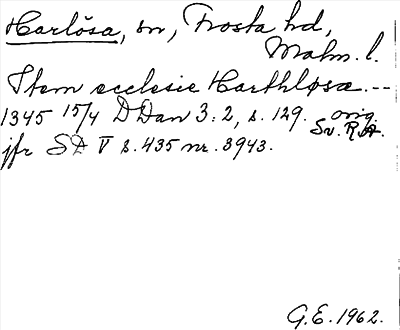 Harlösa, sn, Frosta hd,
Malm. l.
Item ecclesie Harthløsæ. --
1345 15/4 D Dan 3:2, s. 129. orig. Sv. R.A.
jfr SD V s. 435 nr. 3943.
G.E. 1962.